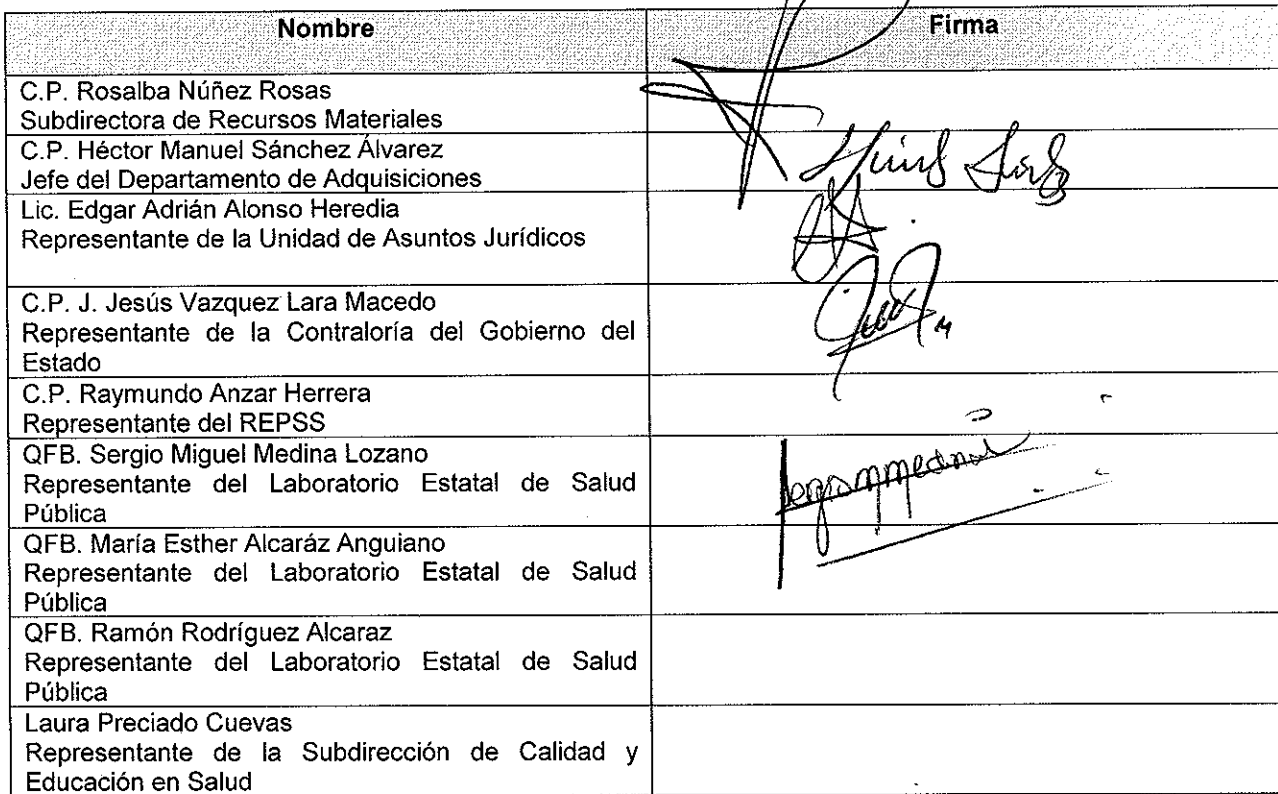 Nombre
Firma
C.P. Rosalba Núñez Rosas
Subdirectora de Recursos Materiales
C.P. Héctor Manuel Sánchez Álvarez
Jefe del Departamento de Adquisiciones
Lic. Edgar Adrián Alonso Heredia
Representante de la Unidad de Asuntos Jurídicos
C.P. J. Jesús Vazquez Lara Macedo
Representante de la Contraloría del Gobierno del
Estado
C.P. Raymundo Anzar Herrera
Representante del REPSS
QFB. Sergio Miguel Medina Lozano
Representante del Laboratorio Estatal de Salud
Pública
QFB. María Esther Alcaráz Anguiano
Representante del Laboratorio Estatal de Salud
Pública
QFB. Ramón Rodríguez Alcaraz
Representante del Laboratorio Estatal de Salud
Pública
Laura Preciado Cuevas
Representante de la Subdirección de Calidad y
Educación en Salud